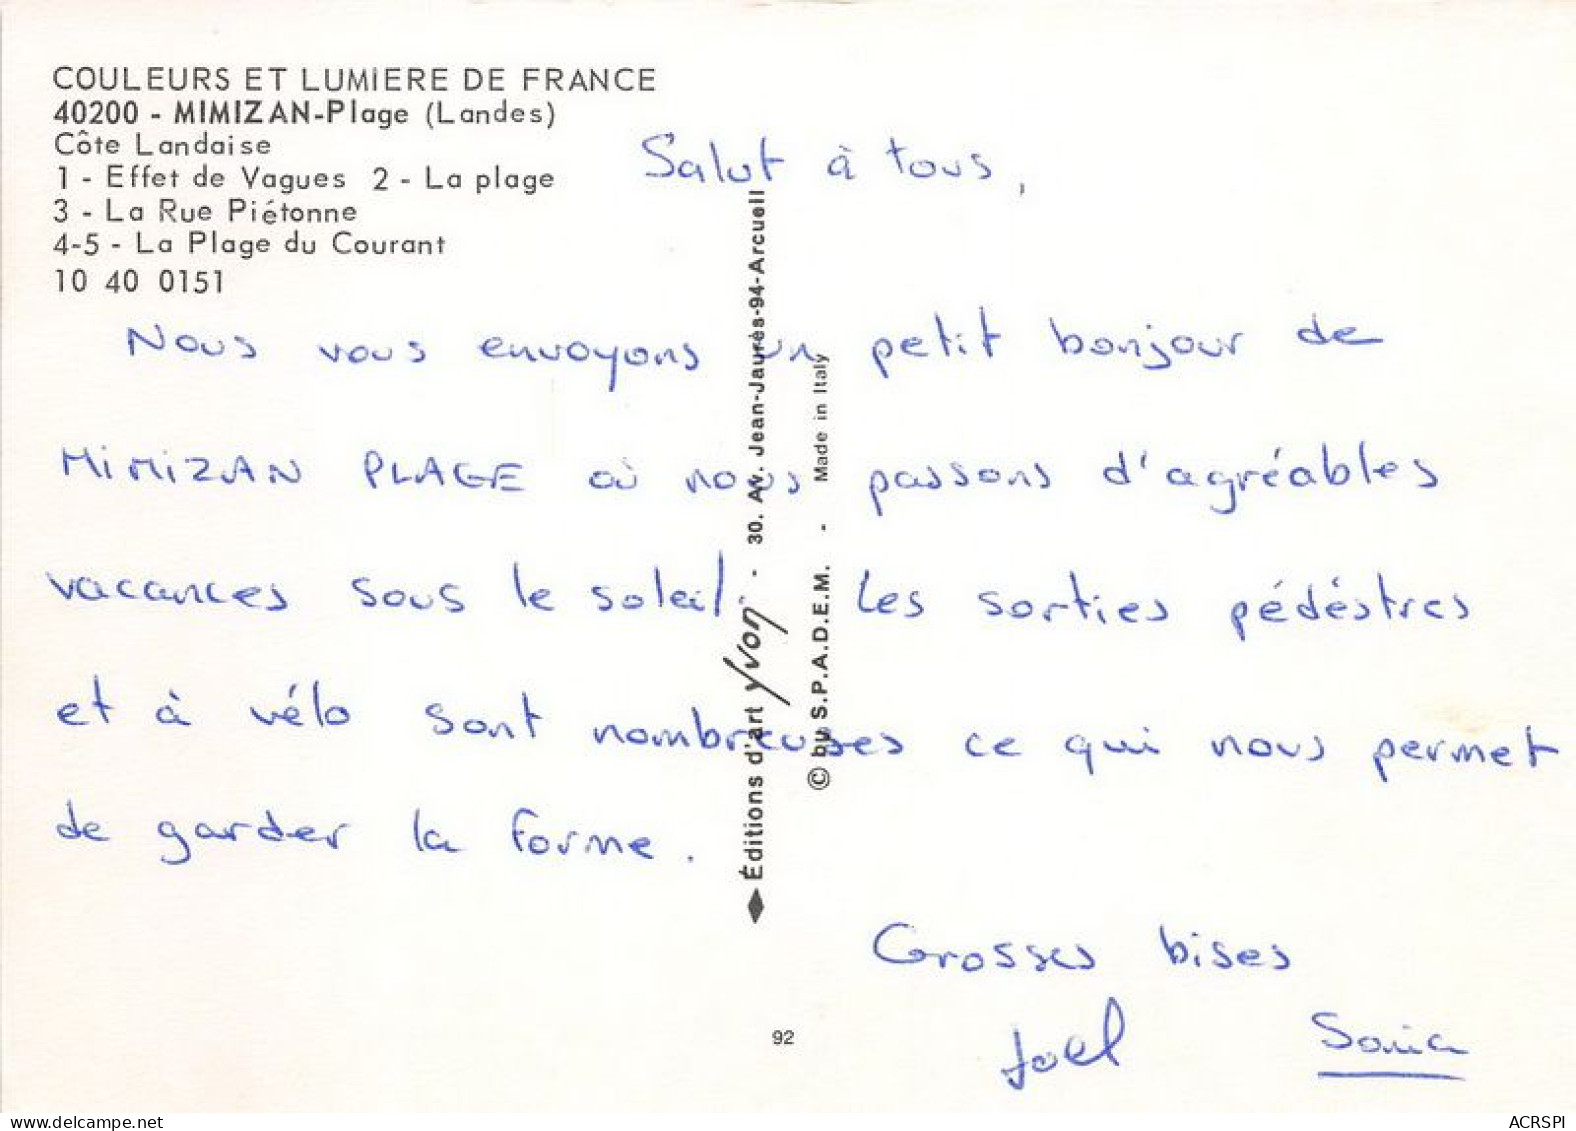 COULEURS ET LUMIERE DE FRANCE
40200 - MIMIZAN-Plage (Landes)
Côte Landaise
1 - Effet de Vagues 2 - La plage
3 - La Rue Piétonne
4-5 - La Plage du Courant
10 40 0151
Salut à tous,
Nous vous envoyons un petit bonjour de
MIMIZAN PLAGE où nous passons d'agréables
vacances sous le soleil. Les sorties pédéstres
et à vélo sont nombreuses ce qui nous permet
de garder la forme.
Grosses bises
Joël Sonia
Éditions d'art Yvon - 30. Av. Jean-Jaurès-94-Arcueil
© by S.P.A.D.E.M. - Made in Italy
92
www.delcampe.net
ACRSPI